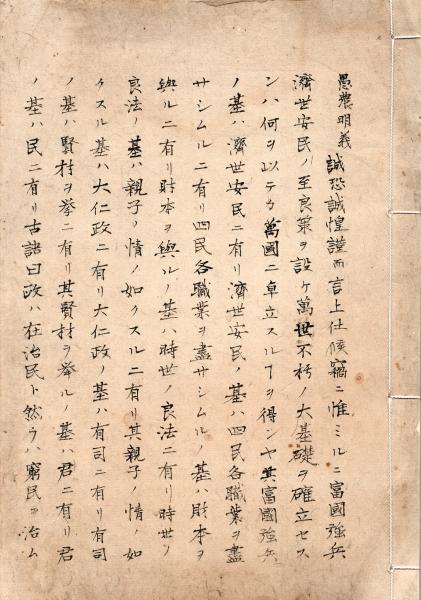 愚農明義
誠恐誠惶謹而言上仕候竊ニ惟ミルニ富國強兵
濟世安民ノ至良策ヲ設ケ萬世不朽ノ大基礎ヲ確立セス
ンハ何ヲ以テカ萬國ニ卓立スルヿヲ得ンヤ其富國強兵
ノ基ハ濟世安民ニ有リ濟世安民ノ基ハ四民各職業ヲ盡
サシムルニ有リ四民各職業ヲ盡サシムルノ基ハ財本ヲ
與ルニ有リ財本ヲ與ルノ基ハ時世ノ良法ニ有リ時世ノ
良法ノ基ハ親子ノ情ノ如クスルニ有リ其親子ノ情ノ如
クスル基ハ大仁政ニ有リ大仁政ノ基ハ有司ニ有リ有司
ノ基ハ賢材ヲ挙ニ有リ其賢材ヲ挙ルノ基ハ君ニ有リ君
ノ基ハ民ニ有リ古諺曰政ハ在治民ト然ラハ窮民ヲ治ム